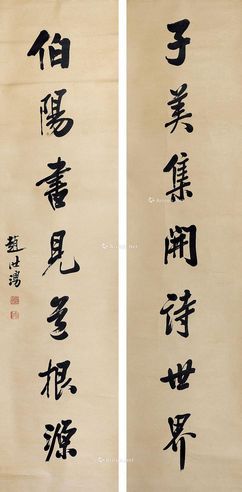 子美集開詩世界
伯陽書見道根源
趙世駿